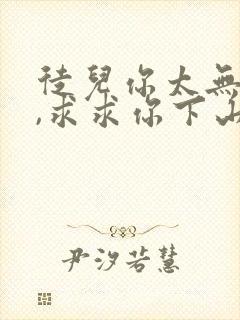 徒兒你太無
,求求你下山
尹汐若慧